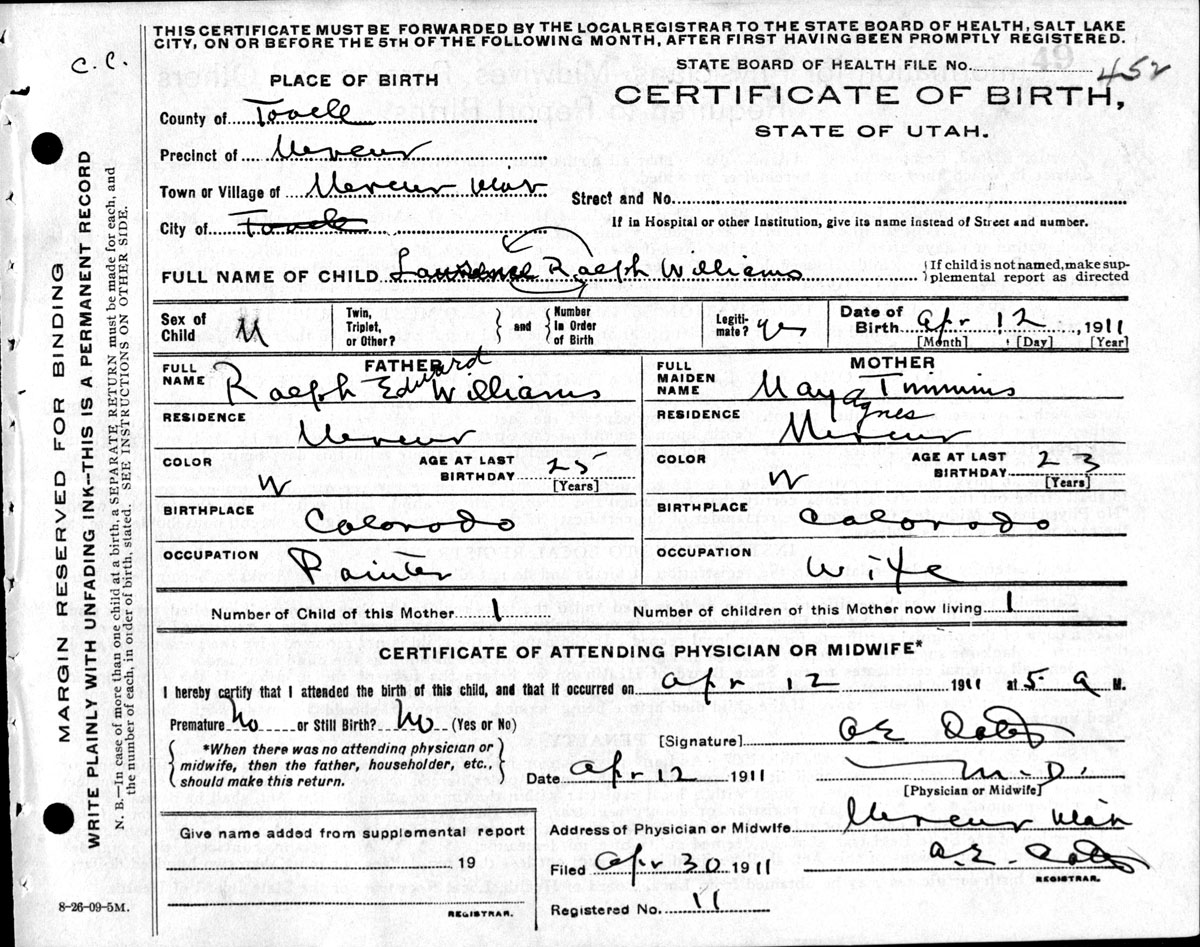 THIS CERTIFICATE MUST BE FORWARDED BY THE LOCALREGISTRAR TO THE STATE BOARD OF HEALTH, SALT LAKE
CITY, ON OR BEFORE THE 5TH OF THE FOLLOWING MONTH, AFTER FIRST HAVING BEEN PROMPTLY REGISTERED.
C. C.
STATE BOARD OF HEALTH FILE NO. 452
PLACE OF BIRTH
CERTIFICATE OF BIRTH,
STATE OF UTAH.
County of Tooele
Precinct of Mercur
Town or Village of Mercur Utah
Street and No.
City of Tooele
If in Hospital or other Institution, give its name insead of Street and number.
FULL NAME OF CHILD Ralph Williams
{If child is not named, make sup-
plemental report as directed
Sex of Child M
Twin, Triplet, or Other? } and { Number In Order of Birth
Legiti-mate? yes
Date of Birth Apr 12, 1911
[Month] [Day] [Year]
FATHER
FULL NAME Ralph Edward Williams
RESIDENCE Mercur
COLOR W
AGE AT LAST BIRTHDAY 25
[Years]
BIRTHPLACE Colorodo
OCCUPATION Painter
MOTHER
FULL MAIDEN NAME May Agnes Timmins
RESIDENCE Mercur
COLOR W
AGE AT LAST BIRTHDAY 23
[Years]
BIRTHPLACE Colorodo
OCCUPATION Wife
Number of Child of this Mother 1
Number of children of this Mother now living 1
CERTIFICATE OF ATTENDING PHYSICIAN OR MIDWIFE*
I hereby certify that I attended the birth of this child, and that it occurred on Apr 12 1911 at 5 a M.
Premature No or Still Birth? No (Yes or No)
{ *When there was no attending physician or
midwife, then the father, householder, etc.,
should make this return. }
[Signature] A E
Date Apr 12 1911
M.D.
[Physician or Midwife]
Give name added from supplemental report
19
REGISTRAR.
Address of Physician or Midwife Mercur Utah
Filed Apr 30 1911
A. E.
REGISTRAR.
Registered No. 11
8-26-09-5M.
MARGIN RESERVED FOR BINDING
WRITE PLAINLY WITH UNFADING INK—THIS IS A PERMANENT RECORD
N. B.—In case of more than one child at a birth, a SEPARATE RETURN must be made for each, and
the number of each, in order of birth, stated. SEE INSTRUCTIONS ON OTHER SIDE.